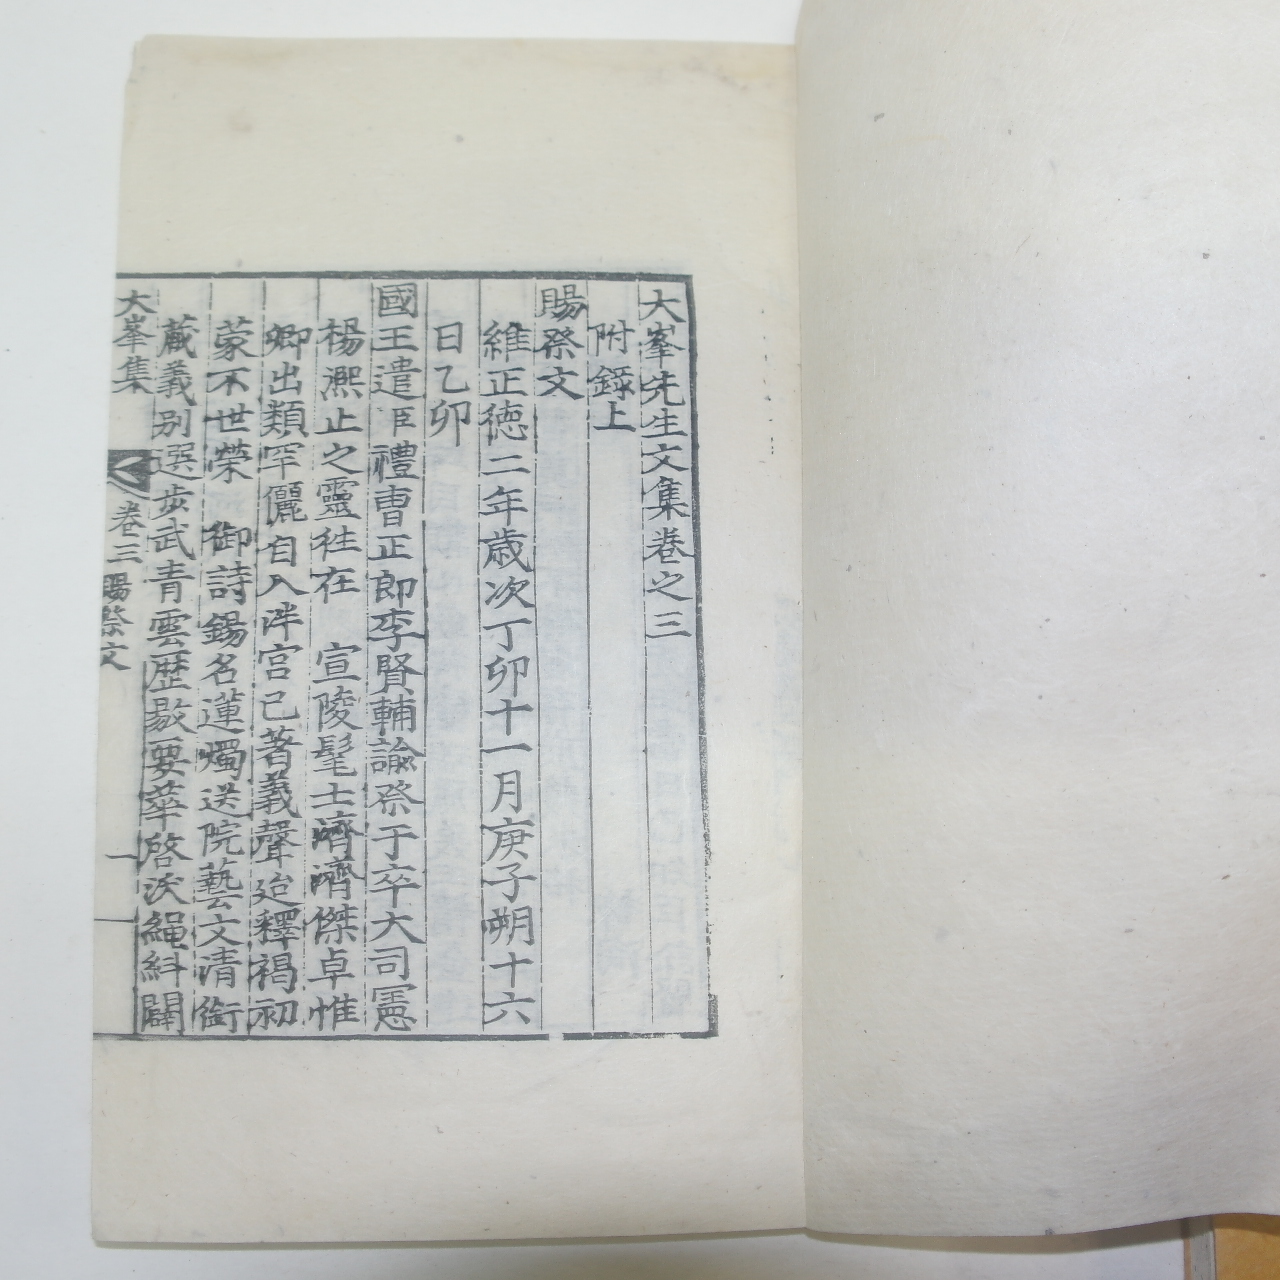 大峯先生文集卷之三
附錄上
賜祭文
維正德二年歲次丁卯十一月庚子朔十六
日乙卯
國王遣臣禮曹正郞李賢輔諭祭于卒大司憲
楊凞止之靈徃在 宣陵髦士濟濟傑卓惟
卿出類罕儷自入泮宮已著義聲迨釋褐初
蒙不世榮 御詩錫名蓮燭送院藝文淸銜
蔵義别選步武青雲歷敭要華啓沃繩糾闢
大峯集 卷三 賜祭文 一